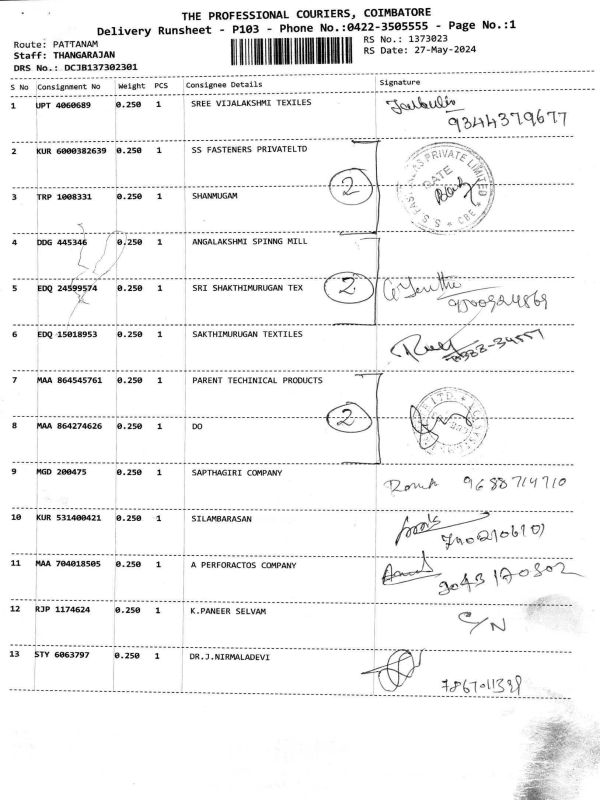 THE PROFESSIONAL COURIERS, COIMBATORE
Delivery Runsheet - P103 - Phone No.:0422-3505555 - Page No.:1
Route: PATTANAM
RS No.: 1373023
Staff: THANGARAJAN
RS Date: 27-May-2024
DRS No.: DCJB137302301
S No Consignment No Weight PCS Consignee Details Signature
1 UPT 4060689 0.250 1 SREE VIJALAKSHMI TEXILES
9344379677
2 KUR 6000382639 0.250 1 SS FASTENERS PRIVATELTD
2
3 TRP 1008331 0.250 1 SHANMUGAM
4 DDG 445346 0.250 1 ANGALAKSHMI SPINNG MILL
5 EDQ 24599574 0.250 1 SRI SHAKTHIMURUGAN TEX 2
6 EDQ 15018953 0.250 1 SAKTHIMURUGAN TEXTILES
7 MAA 864545761 0.250 1 PARENT TECHINICAL PRODUCTS
8 MAA 864274626 0.250 1 DO 2
9 MGD 200475 0.250 1 SAPTHAGIRI COMPANY
9688714710
10 KUR 531400421 0.250 1 SILAMBARASAN
11 MAA 704018505 0.250 1 A PERFORACTOS COMPANY
12 RJP 1174624 0.250 1 K.PANEER SELVAM
C/N
13 STY 6063797 0.250 1 DR.J.NIRMALADEVI